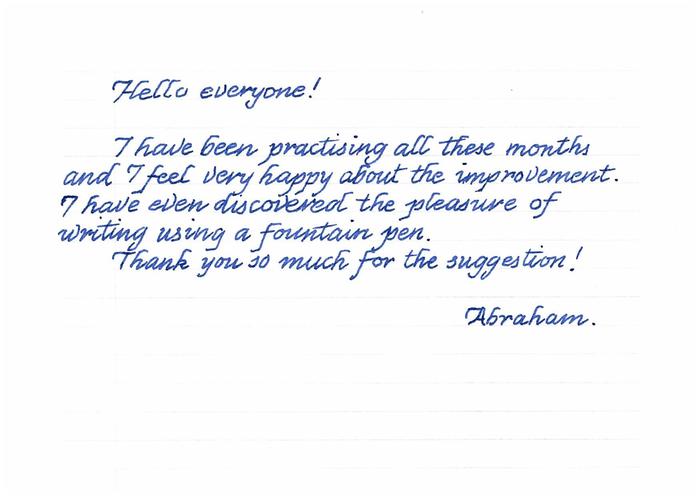 Hello everyone!
I have been practising all these months
and I feel very happy about the improvement.
I have even discovered the pleasure of
writing using a fountain pen.
Thank you so much for the suggestion!
Abraham.